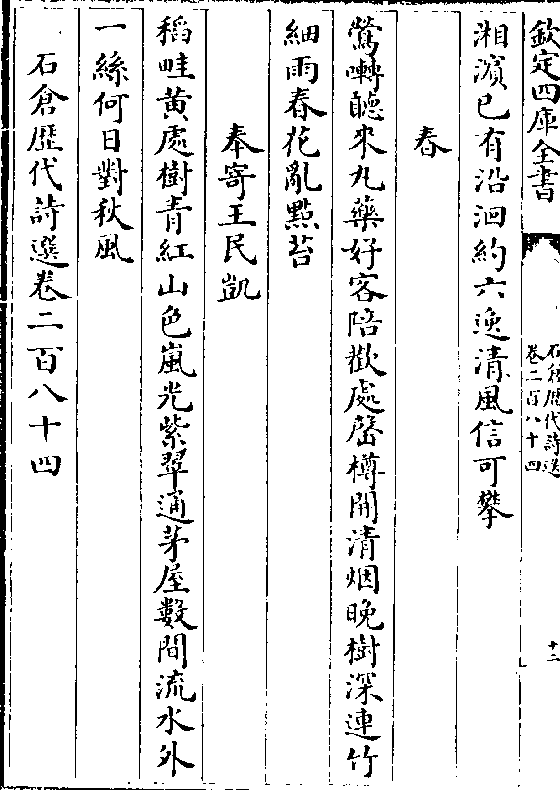 欽定四庫全書
石倉歷代詩選
卷二百八十四
十二
湘濵已有沿洄約六逸清風信可攀
春
鶯囀聽來九藥好客陪歡處罄樽開清烟晩樹深連竹
細雨春花亂㸃苔
奉寄王民凱
稻畦黄處樹青紅山色嵐光紫翠通茅屋數間流水外
一絲何日對秋風
石倉歴代詩選卷二百八十四